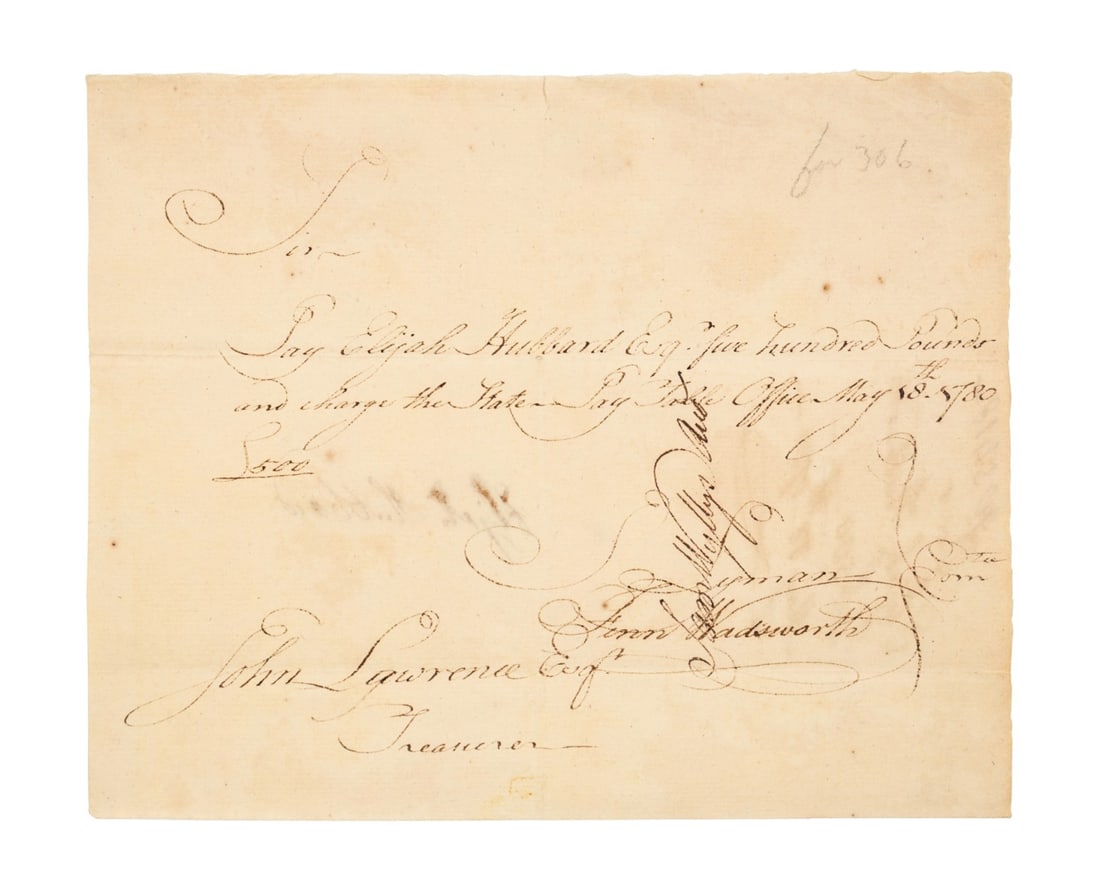 for 306
Sir
Pay Elijah Hubbard Esqr. five hundred Pounds
and charge the State Pay Table Office May 18th. 1780
£500
Wyllys
Lyman
Fenn Wadsworth
Comtee
John Lawrence Esqr.
Treasurer
Elijah Hubbard